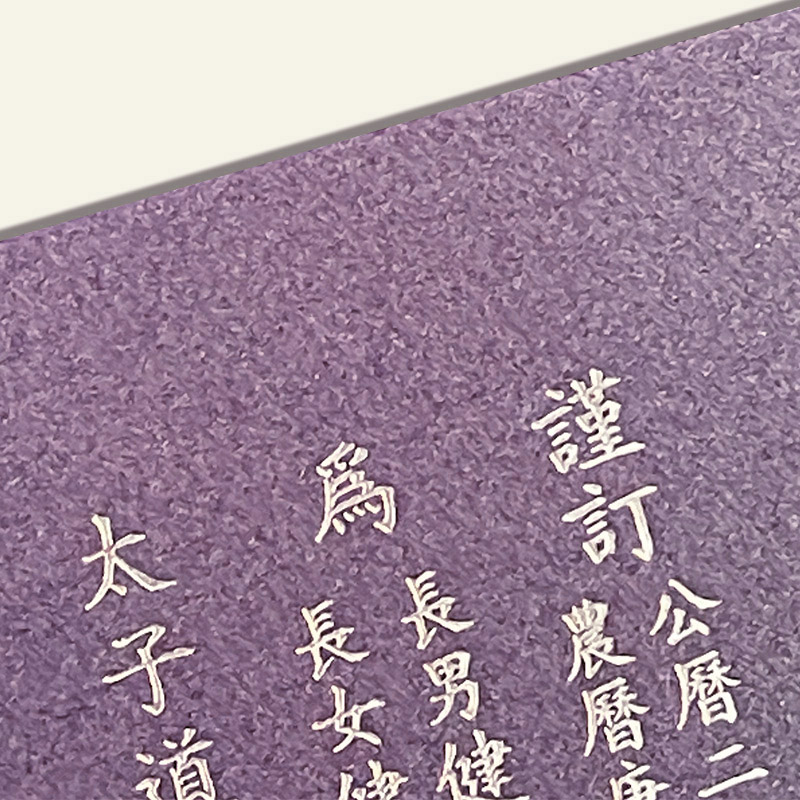 謹訂
公曆二
農曆
為
長男健
長女健
太子道